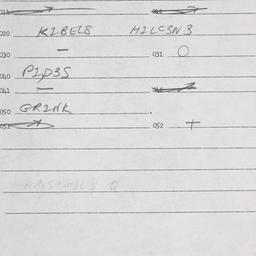 020 K1BEL8 H2LC3N3
030 — 031 O
040 P1D3S
041 —
050 GR2NK
051 052 +